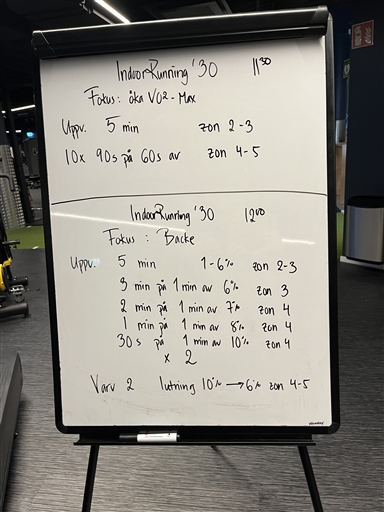 IndoorRunning '30 11³⁰
Fokus: öka VO2-Max
Uppv. 5 min zon 2-3
10x 90s på 60s av zon 4-5
IndoorRunning '30 12⁰⁰
Fokus: Backe
Uppv. 5 min 1-6% zon 2-3
3 min på 1 min av 6% zon 3
2 min på 1 min av 7% zon 4
1 min på 1 min av 8% zon 4
30 s på 1 min av 10% zon 4
x 2
Varv 2 lutning 10% → 6% zon 4-5